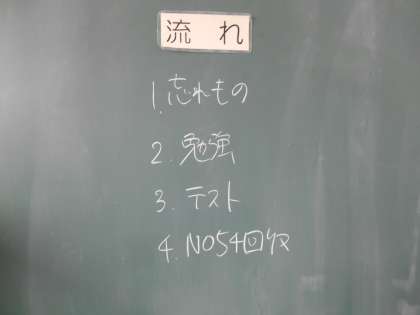 流れ
1.忘れもの
2.勉強
3.テスト
4.NO54回収